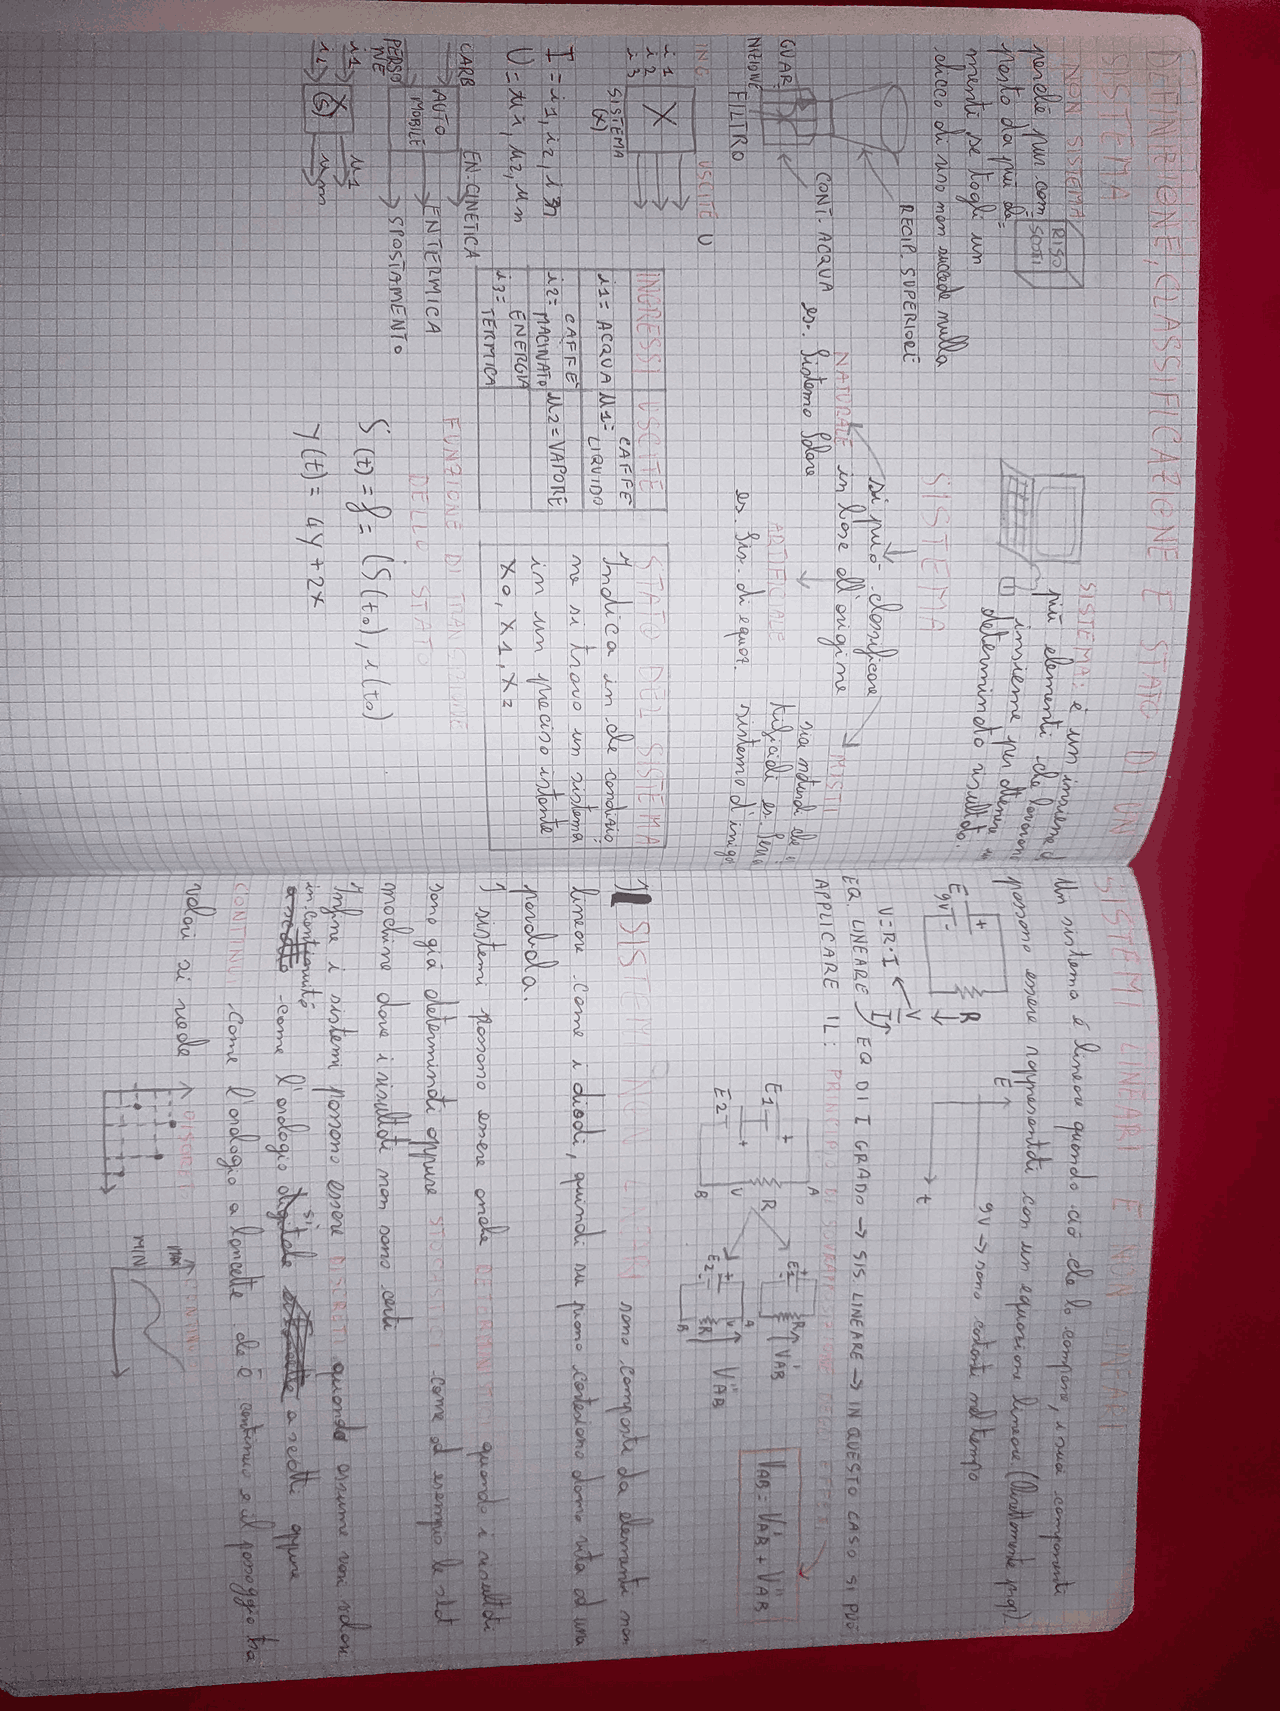 DEFINIZIONE, CLASSIFICAZIONE E STATO DI UN
SISTEMA
NON SISTEMA
perché pur com=
posto da più ele=
menti se togli un
chicco di riso non succede nulla
RISO
SCOTTI
SISTEMA: è un insieme di
più elementi che lavorano
insieme per ottenere un
determinato risultato.
RECIP. SUPERIORE
CONT. ACQUA
GUAR
NIZIONE
FILTRO
SISTEMA
si può classificare
in base all'origine
NATURALE
es. Sistema Solare
ARTIFICIALE
es. Sis. di equaz.
MISTI
sia naturali che
es.
sistema d'irriga
ING
USCITE U
i1
i2
i3
X
SISTEMA
(X)
I = i1, i2, i3n
U = u1, u2, un
CARB
PERSO
NE
AUTO
MOBILE
EN. CINETICA
EN TERMICA
SPOSTAMENTO
i1
i2
X
(S)
u1
um
INGRESSI
USCITE
i1= ACQUA
u1= CAFFÈ
LIQUIDO
i2= CAFFÈ
MACINATO
u2= VAPORE
i3= ENERGIA
TERMICA
STATO DEL SISTEMA
Indica in che condizio=
ne si trova un sistema
in un preciso istante
X0, X1, X2
FUNZIONE DI TRANSIZIONE
DELLO STATO
S(t) = f = (S(t0), i(t0)
Y(t) = 4y + 2x
SISTEMI LINEARI E NON LINEARI
Un sistema è lineare quando ciò che lo compone, i suoi componenti
possono essere rappresentati con un equazione lineare (direttamente prop).
E
9V
+
R
V
I
E
t
9V → sono costanti nel tempo
V = R · I
EQ. LINEARE
EQ DI I GRADO → SIS LINEARE → IN QUESTO CASO SI PUÒ
APPLICARE IL: PRINCIPIO DI SOVRAPPOSIZIONE DEGLI EFFETTI
E1
E2
+
+
R
A
V
B
E1
R
V'AB
E2
R
A
B
V''AB
VAB = V'AB + V''AB
I SISTEMI NON LINEARI sono composti da elementi non
lineari come i diodi, quindi su piano cartesiano danno vita ad una
parabola.
I sistemi possono essere anche DETERMINISTICI quando i risultati
sono già determinati oppure STOCASTICI come ad esempio le slot
machine dove i risultati non sono certi
Infine i sistemi possono essere DISCRETI quando assume vari valori
in continuità
come l'orologio digitale
a scatti oppure
CONTINUI come l'orologio a lancette che è continuo e il passaggio tra
valori si vede
DISCRETO
CONTINUO
MAX
MIN